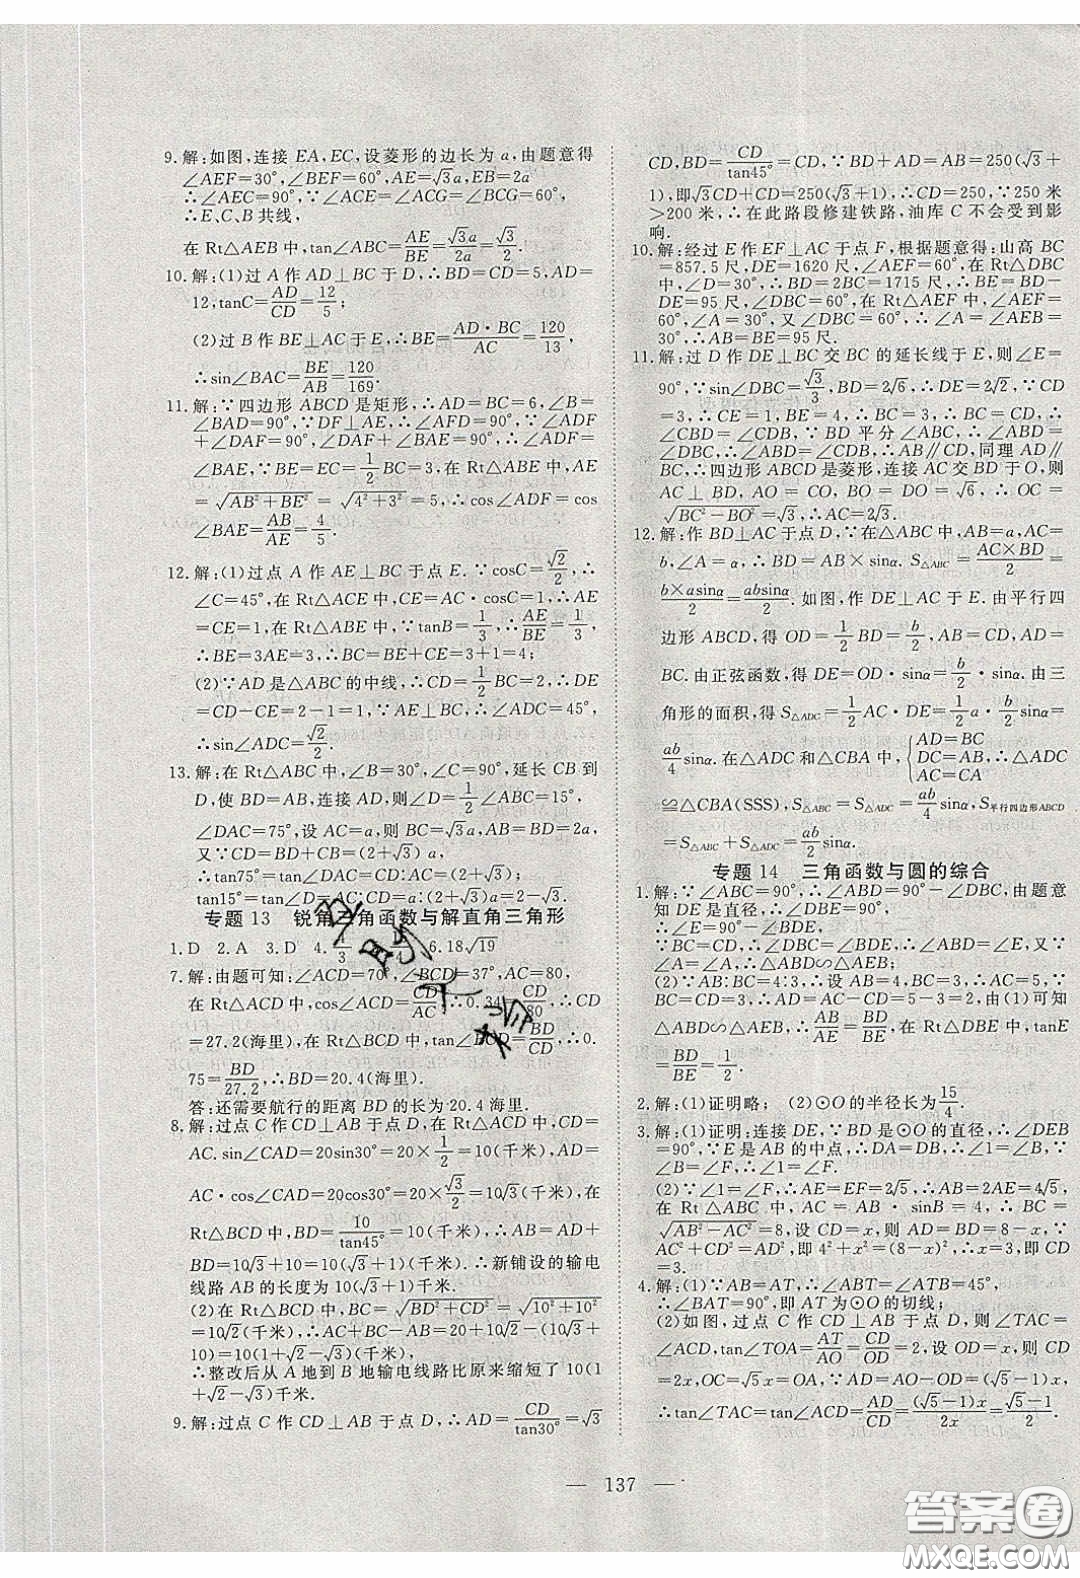 9.解:如图,连接EA,EC,设菱形的边长为a,由题意得
∠AEF=30°,∠BEF=60°,AE=√3a,EB=2a
∴∠AEC=90°,∵∠ACE=∠ACG=∠BCG=60°,
∴E、C、B共线,
在Rt△AEB中,tan∠ABC=AE/BE=√3a/2a=√3/2.
10.解:(1)过A作AD⊥BC于D,∴BD=CD=5,AD=
12,tanC=AD/CD=12/5;
(2)过B作BE⊥AC于E,∴BE=AD·BC/AC=120/13,
∴sin∠BAC=BE/AB=120/169.
11.解:∵四边形ABCD是矩形,∴AD=BC=6,∠B=
∠BAD=90°,∵DF⊥AE,∴∠AFD=90°,∴∠ADF
+∠DAF=90°,∠DAF+∠BAE=90°,∴∠ADF=
∠BAE,∵BE=EC=1/2BC=3,在Rt△ABE中,AE
=√(AB²+BE²)=√(4²+3²)=5,∴cos∠ADF=cos
∠BAE=AB/AE=4/5.
12.解:(1)过点A作AE⊥BC于点E.∵cosC=√2/2,∴
∠C=45°,在Rt△ACE中,CE=AC·cosC=1,∴AE
=CE=1,在Rt△ABE中,∵tanB=1/3,∴AE/BE=1/3,
∴BE=3AE=3,∴BC=BE+CE=4;
(2)∵AD是△ABC的中线,∴CD=1/2BC=2,∴DE
=CD-CE=2-1=1,∵AE⊥BC,∴∠ADC=45°,
∴sin∠ADC=√2/2.
13.解:在Rt△ABC中,∠B=30°,∠C=90°,延长CB到
D,使BD=AB,连接AD,则∠D=1/2∠ABC=15°,
∠DAC=75°,设AC=a,则BC=√3a,AB=BD=2a,
又∵CD=BC+BD=(2+√3)a,
∴tan75°=tan∠DAC=CD:AC=(2+√3)a:a,
∴tan15°=2+√3.
专题13 锐角三角函数与解直角三角形
1.D 2.A 3.D 4.4/3 6.18√19
7.解:由题可知:∠ACD=70°,∠BCD=37°,AC=80,
在Rt△ACD中,cos∠ACD=CD/AC,∴0.34=CD/80,∴CD
=27.2(海里),在Rt△BCD中,tan∠BCD=BD/CD,∴0.
75=BD/27.2,∴BD=20.4(海里).
答:还需要航行的距离BD的长为20.4海里.
8.解:过点C作CD⊥AB于点D,在Rt△ACD中,CD=
AC.sin∠CAD=20sin30°=20×1/2=10(千米),AD=
AC·cos∠CAD=20cos30°=20×√3/2=10(千米),在
Rt△BCD中,BD=10/tan45°=10(千米),∴AB=AD+
BD=10√3+10=10(√3+1)(千米).∴新铺设的输电
线路AB的长度为10(√3+1)(千米);
(2)在Rt△BCD中,BC=√(BD²+CD²)=√(10²+10²)
=10√2(千米)∴AC+BC-AB=20+10√2-(10√3+
10)=10(1+√2-√3)(千米).
∴整改后从A地到B地输电线路比原来缩短了10(1
+√2-√3)千米.
9.解:过点C作CD⊥AB于点D,∴AD=CD/tan30°=√3
CD,BD=CD/tan45°=CD,∵BD+AD=AB=250(√3+
1),即√3CD+CD=250(√3+1),∴CD=250,∵250米
>200米,∴在此路段修建铁路,油库C不会受到影
响.
10.解:经过E作EF⊥AC于点F,根据题意得:山高BC
=857.5尺,DE=1620尺,∠AEF=60°,在Rt△DBC
中,∠D=30°,∴BD=2BC=1715尺,∴BE=BD-
DE=95尺,∠DBC=60°,在Rt△AEF中,∠AEF=
60°,∠A=30°,又∠DBC=60°,∴∠BEA=∠A=
30°,∴AB=BE=95尺.
11.解:过D作DE⊥BC交BC的延长线于E,则∠E=
90°,∵sin∠DBC=√3/3,BD=2√6,∴DE=2√2,∵CD
=3,∴CE=1,BE=4,∴BC=3,∴BC=CD,∴
∠CBD=∠CDB,∵BD平分∠ABC,∴∠ABD=
∠DBC,∴∠ABD=∠CDB,∴AB∥CD,同理AD∥
BC,∴四边形ABCD是菱形,连接AC交BD于O,则
AC⊥BD,AO=CO,BO=DO=√6,∴OC=
√(BC²-BO²)=√3,∴AC=2√3.
12.解:作BD⊥AC于点D,∵在△ABC中,AB=a,AC=
b,∠A=α,∴BD=AB×sinα,∴S△ABC=AC×BD/2=
b×asinα/2=absinα/2.如图,作DE⊥AC于E.由平行四
边形ABCD,得OD=1/2BD=b/2,AB=CD,AD=
BC.由正弦函数,得DE=OD·sinα=b/2·sinα.由三
角形的面积,得S△ADC=1/2AC·DE=1/2a·b/2·sinα=
ab/4sinα.在△ADC和△CBA中,{AD=BC DC=AB AC=CA
≌△CBA(SSS),S△ABC=S△ADC=ab/4sinα,S平行四边形ABCD
=S△ABC+S△ADC=ab/2sinα.
专题14 三角函数与圆的综合
1.解:(1)∵∠ABD=90°-∠DBC,由题意
知DE是直径,∴∠DBE=90°,∴∠E=90°-∠BDE,
∵BC=CD,∴∠DBC=∠BDE,∴∠ABD=∠E,∵
∠A=∠A,∴△ABD∽△AEB;
(2)∵AB:BC=4:3,∴设AB=4,BC=3,∴AC=5,∵
BC=CD=3,∴AD=AC-CD=5-3=2,由(1)可知
△ABD∽△AEB,∴AB/AE=BD/BE,在Rt△DBE中,tanE
=BD/BE=1/2.
2.解:(1)证明略;(2)⊙O的半径长为15/4.
3.解:(1)证明:连接DE,∵BD是⊙O的直径,∴∠DEB
=90°,∵E是AB的中点,∴DA=DB,∴∠1=∠B,
∵∠B=∠F,∴∠1=∠F;
(2)∵∠1=∠F,∴AE=EF=2√5,∴AB=2AE=4√5,
在Rt△ABC中,AC=AB·sinB=4,∴BC=
√(AB²-AC²)=8,设CD=x,则AD=BD=8-x,∵
AC²+CD²=AD²,即4²+x²=(8-x)²,∴x=3,即CD
=3.
4.解:(1)∵AB=AT,∴∠ABT=∠ATB=45°,
∴∠BAT=90°,即AT为⊙O的切线;
(2)如图,过点C作CD⊥AB于D,则∠TAC=
∠ACD,tan∠TOA=AT/AO=CD/OD=2,设OD=x,则CD
=2x,OC=√5x=OA,∵AD=AO-OD=(√5-1)x,
∴tan∠TAC=tan∠ACD=AD/CD=(√5-1)x/2x=√5-1/2.
— 137 —
答案圈
MXQE.COM